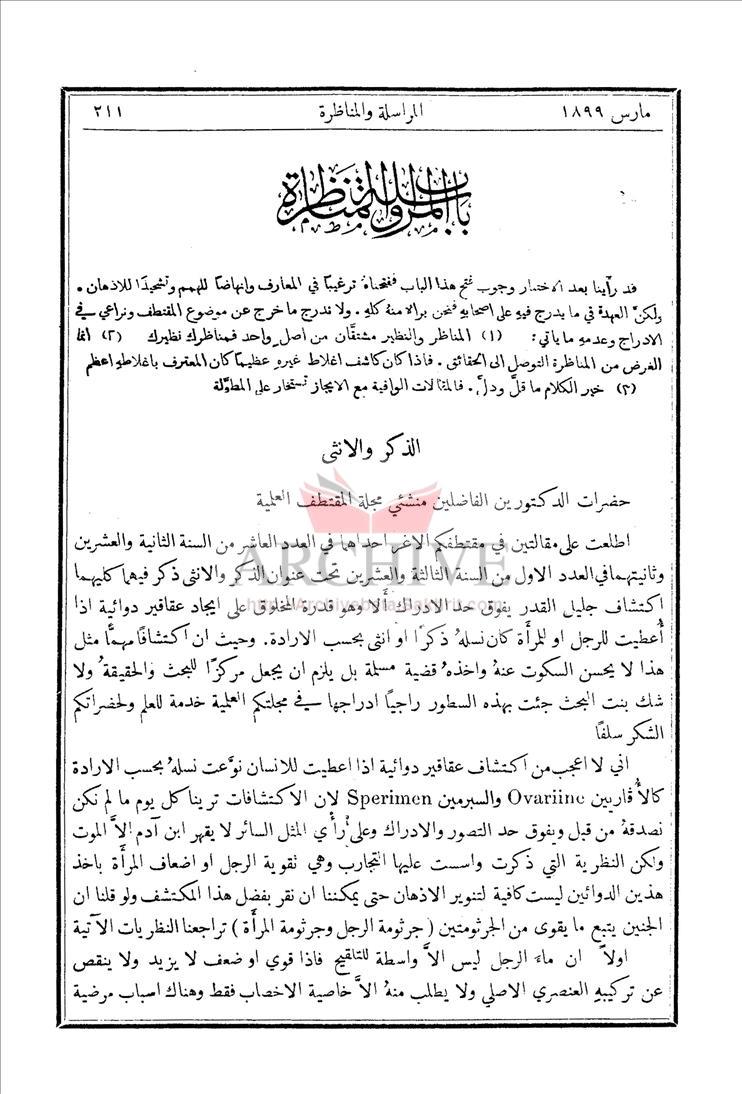 مارس ١٨٩٩ المراسلة والمناظرة ٢١١
باب المراسلة والمناظرة
قد رأينا بعد الاختبار وجوب فتح هذا الباب ففتحناهُ ترغيبًا في المعارف وإنهاضًا للهمم وتشحيذًا للاذهان .
ولكنَّ العهدة في ما يدرج فيهِ على اصحابهِ فنحن براءٌ منهُ كلهِ . ولا ندرج ما خرج عن موضوع المقتطف ونراعي في
الادراج وعدمهِ ما يأتي : (١) المناظر والنظير مشتقَّان من اصل واحد فمناظرك نظيرك (٢) انما
الغرض من المناظرة التوصل الى الحقائق . فاذا كان كاشف اغلاط غيرهِ عظيمًا كان المعترف باغلاطهِ اعظم
(٣) خير الكلام ما قلَّ ودلَّ . فالمقالات الوافية مع الايجاز تستخار على المطوَّلة
الذكر والانثى
حضرات الدكتورين الفاضلين منشئي مجلة المقتطف العلمية
اطلعت على مقالتين في مقتطفكم الاغر احداهما في العدد العاشر من السنة الثانية والعشرين
وثانيتهما في العدد الاول من السنة الثالثة والعشرين تحت عنوان الذكر والانثى ذكر فيهما كليهما
اكتشاف جليل القدر يفوق حد الادراك ألا وهو قدرة المخلوق على ايجاد عقاقير دوائية اذا
أُعطيت للرجل او للمرأة كان نسلهُ ذكرًا او انثى بحسب الارادة. وحيث ان اكتشافًا مهمًّا مثل
هذا لا يحسن السكوت عنهُ واخذهُ قضية مسلمة بل يلزم ان يجعل مركزًا للبحث والحقيقة ولا
شك بنت البحث جئت بهذه السطور راجيًا ادراجها في مجلتكم العلمية خدمة للعلم ولحضراتكم
الشكر سلفًا
اني لا اعجب من اكتشاف عقاقير دوائية اذا اعطيت للانسان نوَّعت نسلهُ بحسب الارادة
كالأُڤاريين Ovariine والسبرمين Sperimen لان الاكتشافات ترينا كل يوم ما لم نكن
نصدقهُ من قبل ويفوق حد التصور والادراك وعلى رأْي المثل السائر لا يقهر ابن آدم الاَّ الموت
ولكن النظرية التي ذكرت واسست عليها التجارب وهي نقوية الرجل او اضعاف المرأة باخذ
هذين الدوائين ليست كافية لتنوير الاذهان حتى يمكننا ان نقر بفضل هذا المكتشف ولو قلنا ان
الجنين يتبع ما يقوى من الجرثومتين ( جرثومة الرجل وجرثومة المرأة ) تراجعنا النظريات الآتية
اولاً ان ماء الرجل ليس الاَّ واسطة للتلقيح فاذا قوي او ضعف لا يزيد ولا ينقص
عن تركيبهِ العنصري الاصلي ولا يطلب منهُ الاَّ خاصية الاخصاب فقط وهناك اسباب مرضية
ARCHIVE